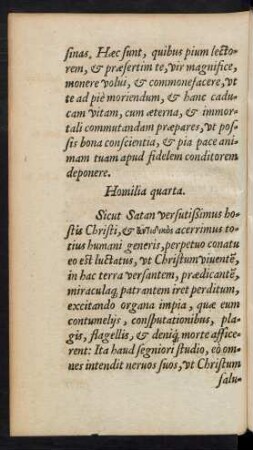 sinas. Hæc sunt, quibus pium lecto-
rem, & præsertim te, vir magnifice,
monere volui, & commonefacere, vt
te ad piè moriendum, & hanc cadu-
cam vitam, cum æterna, & immor-
tali commutandam præpares, vt pos-
sis bona conscientia, & pia pace ani-
mam tuam apud fidelem conditorem
deponere.
Homilia quarta.
Sicut Satan versutißimus ho-
stis Christi, & acerrimus to-
tius humani generis, perpetuo conatu
eo est luctatus, vt Christum viuentẽ,
in hac terra versantem, prædicantẽ,
miraculaq́; patrantem iret perditum,
excitando organa impia, quæ eum
contumelijs, consputationibus, pla-
gis, flagellis, & deniq́; morte affice-
rent: Ita haud segniori studio, eò om-
nes intendit neruos suos, vt Christum
salu-